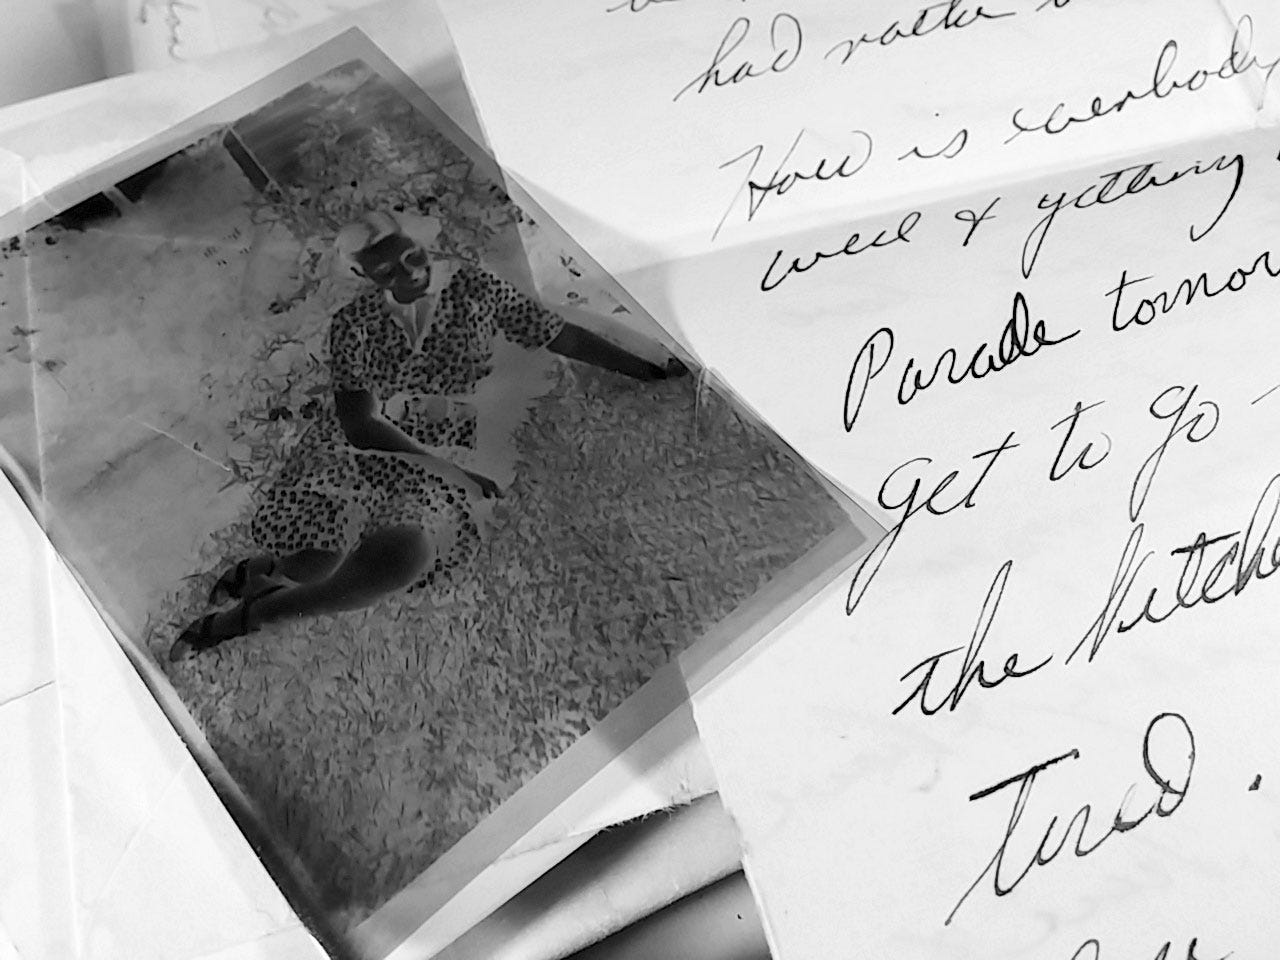 had rather
How is everbody
well & getting
Parade tomor
get to go -
the kitche
Tired.